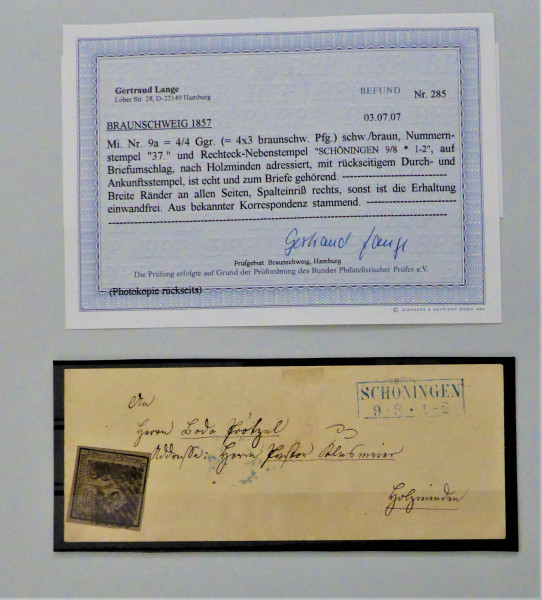 Gertraud Lange
Loher Str. 28, D-22149 Hamburg
BEFUND
Nr. 285
03.07.07
BRAUNSCHWEIG 1857
Mi. Nr. 9a = 4/4 Ggr. (= 4x3 braunschw. Pfg.) schw./braun, Nummern-
stempel "37." und Rechteck-Nebenstempel "SCHÖNINGEN 9/8 * 1-2", auf
Briefumschlag, nach Holzminden adressiert, mit rückseitigem Durch- und
Ankunftsstempel, ist echt und zum Briefe gehörend. ---------------------
Breite Ränder an allen Seiten, Spalteinriß rechts, sonst ist die Erhaltung
einwandfrei. Aus bekannter Korrespondenz stammend. -------------------
Gertraud Lange
Prüfgebiet: Braunschweig, Hamburg
Die Prüfung erfolgte auf Grund der Prüfordnung des Bundes Philatelistischer Prüfer e.V.
(Photokopie rückseits)
SCHÖNINGEN
9 · 8 · 1-2
An
Herrn Bodo
Addresse: Herrn Pastor
Holzminden